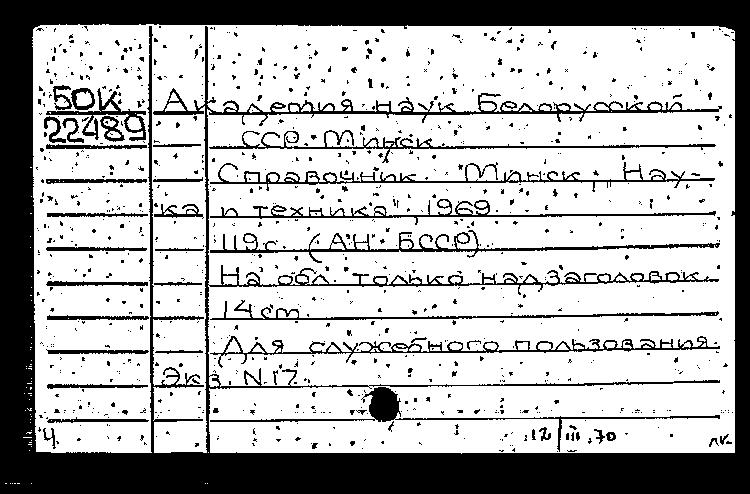 БОК Академия наук Белорусской
22489 ССР. Минск.
Справочник. "Минск, Нау-
ка и техника", 1969.
119 с. (АН БССР)
На обл. только надзаголовок.
14 см.
Для служебного пользования.
Экз. N 17.
Ч 12/III.70